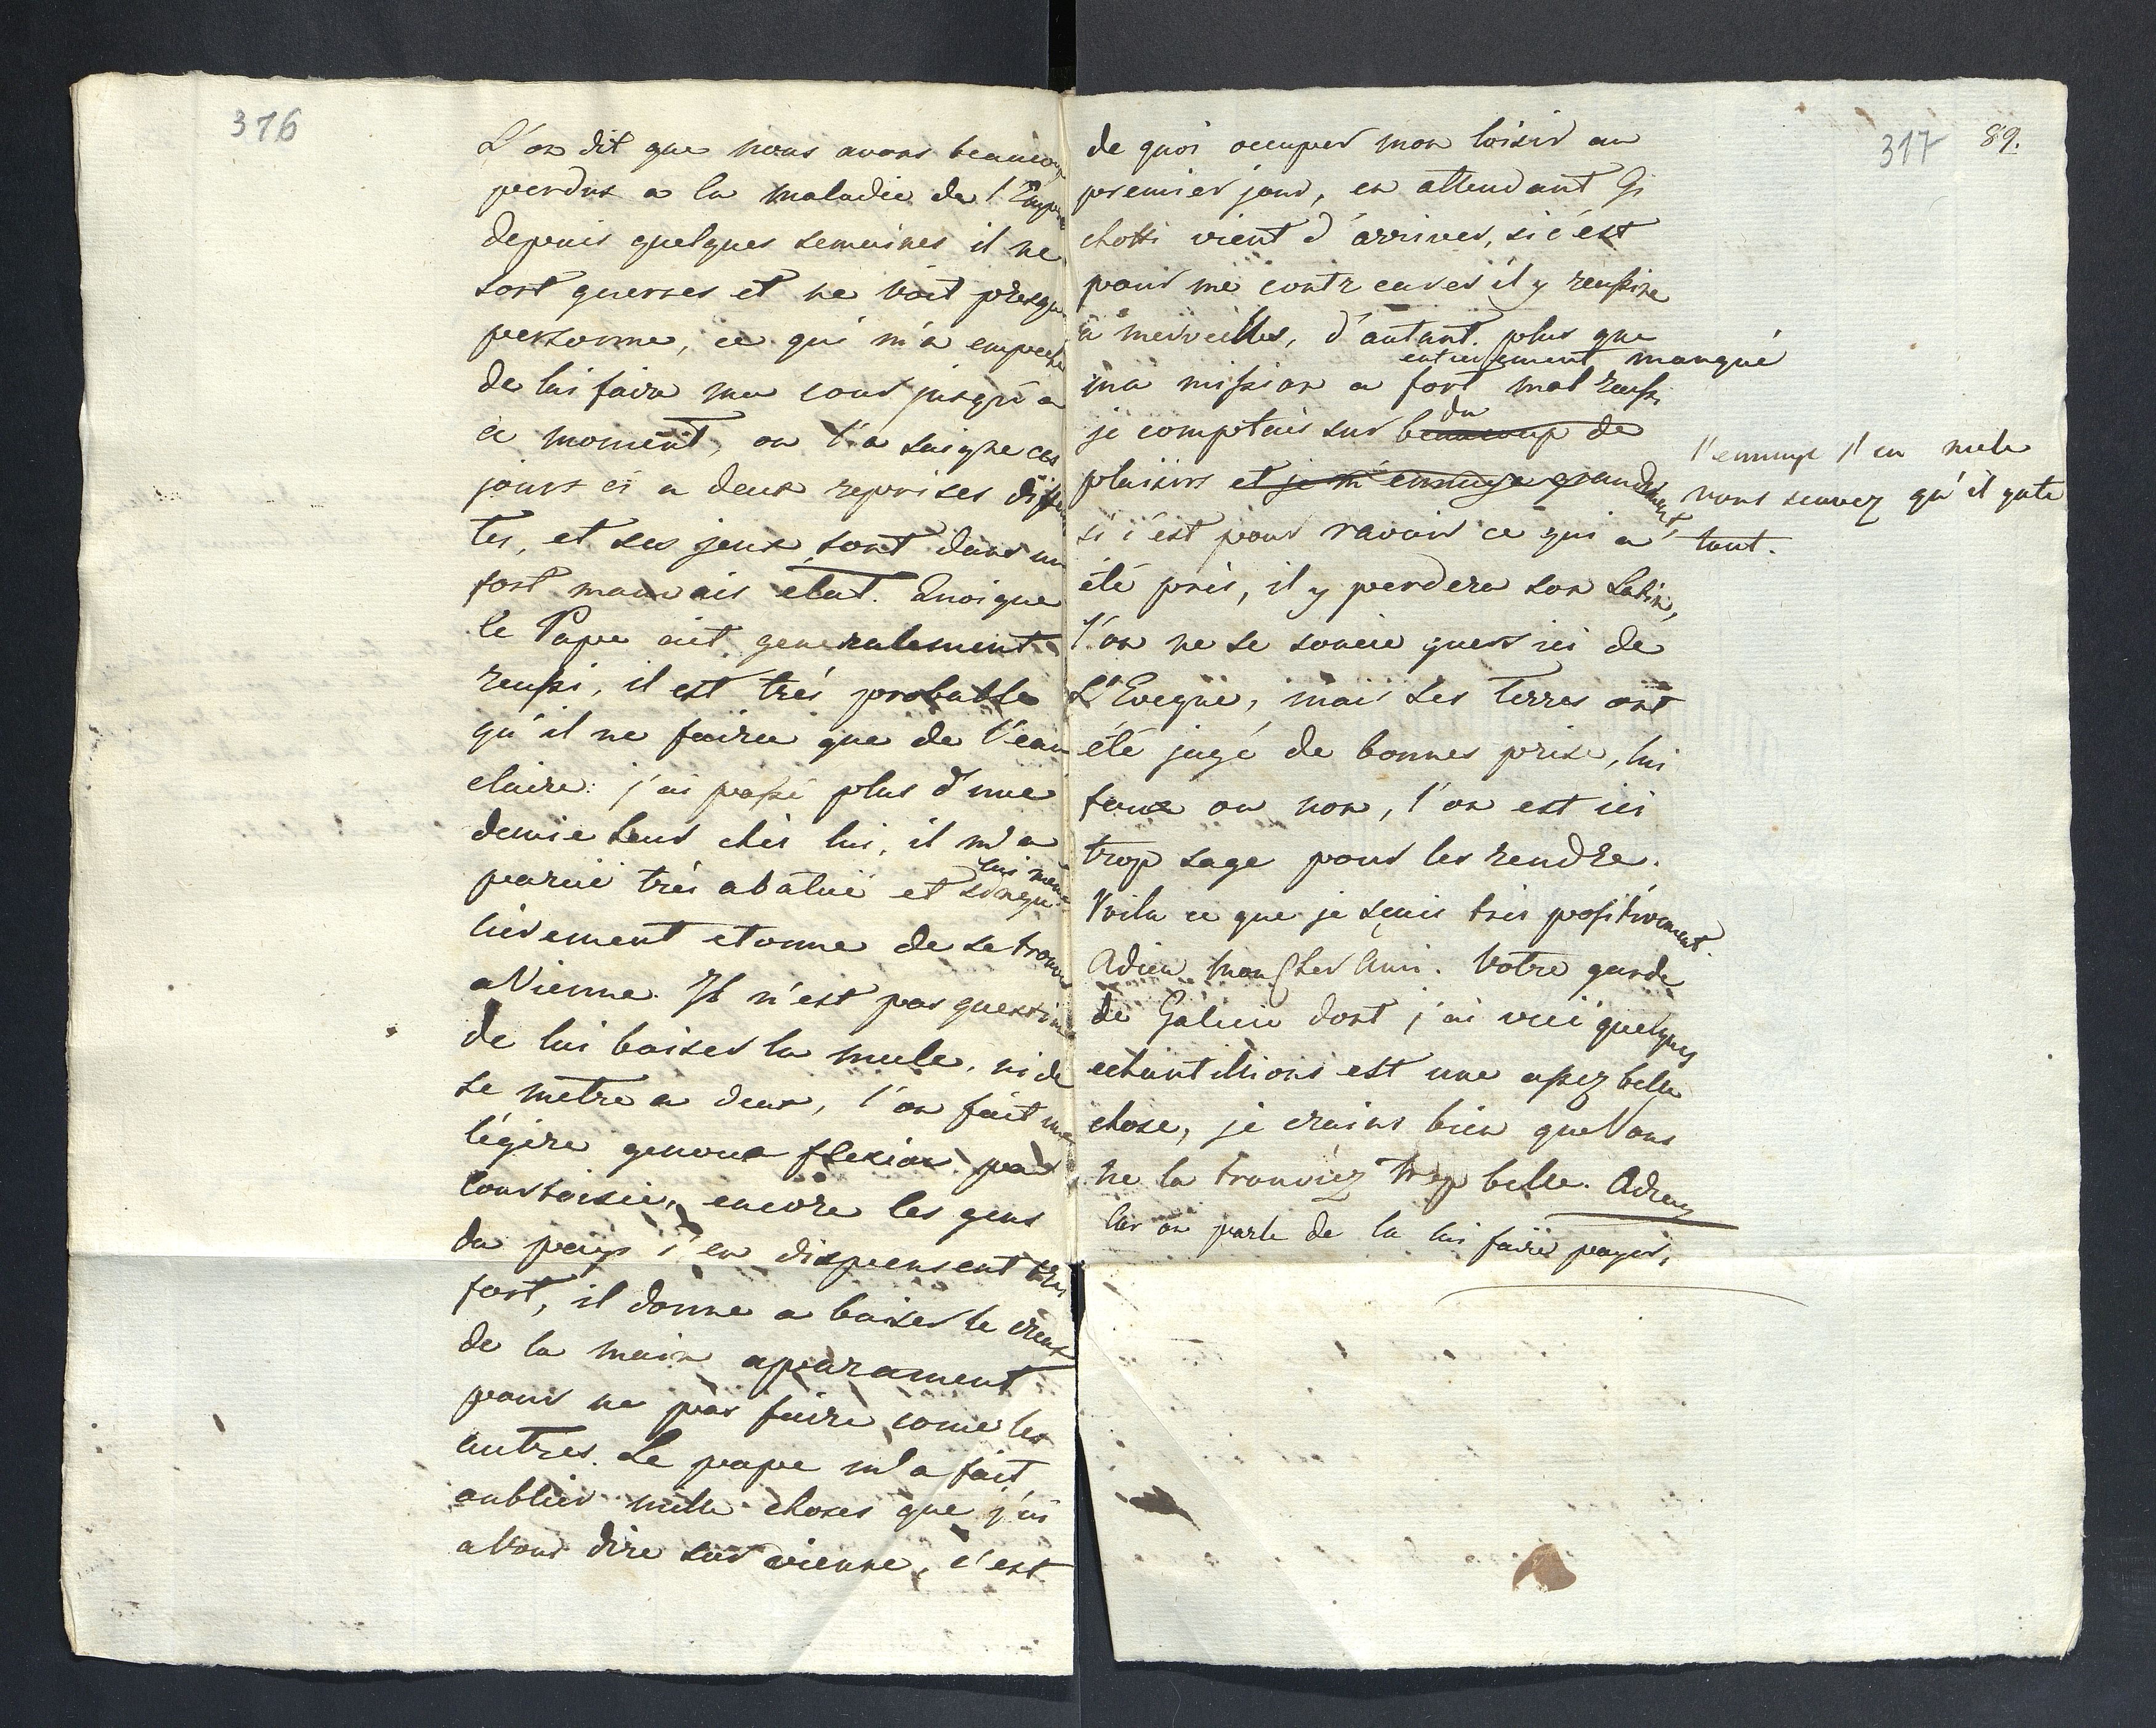 376
L'on dit que nous avons beaucoup
perdus a la maladie de l'Emper
depuis quelques semaines il ne
sort guerres et ne voit presque
personne, ce qui m'a empeche
de lui faire ma cour jusqu'a
ce moment, on l'a saigne ces
jours ci a deux reprises differen
tes, et ses jeux sont dans un
fort mauvais etat. Quoique
le Pape ait generalement
reussi, il est très probable
qu'il ne faira que de l'eau
claire: j'ai passé plus d'une
demie heur chés lui, il m'a
lui même
parüe très abatüe et singu
lierement etonne de se trouver
a Vienne. Il n'est pas question
de lui baiser la mule, ni de
se metre a deux, l'on fait une
légère genoux flexion par
courtoisie, encore les gens
du pays s'en dispensent tres
fort, il donne a baiser le creux
de la main aparament
pour ne pas faire come les
autres. Le pape m'a fait
oublier mille choses que j'ai
a Vous dire sur vienne, c'est
317 89.
de quoi occuper mon loisir au
premier jour, en attendant Gi
chotti vient d'arriver, si c'est
pour me contr carer il y reussira
a merveilles, d'autant plus que
entierement manqué
ma mission a fort mal reussi
du
je comptais sur beaucoup de
plaisirs et je m'ennuye grandement,
l'ennuye s'en mele
vous scavez qu'il gate
tout.
si c'est pour ravoir ce qui a
été pris, il y perdera son Latin,
l'on ne se soucie guerr ici de
L'Eveque, mais ses Terres ont
été jugé de bonnes prise, lui
faux ou non, l'on est ici
trop sage pour les rendre.
Voila ce que je scais très positivement.
Adieu mon Cher Ami. Votre garde
de Galicie dont j'ai vüe quelques
echantillions est une assez belle
chose, je crains bien que Vous
ne la trouviez trop belle. Adieu
Car on parle de la lui faire payer,